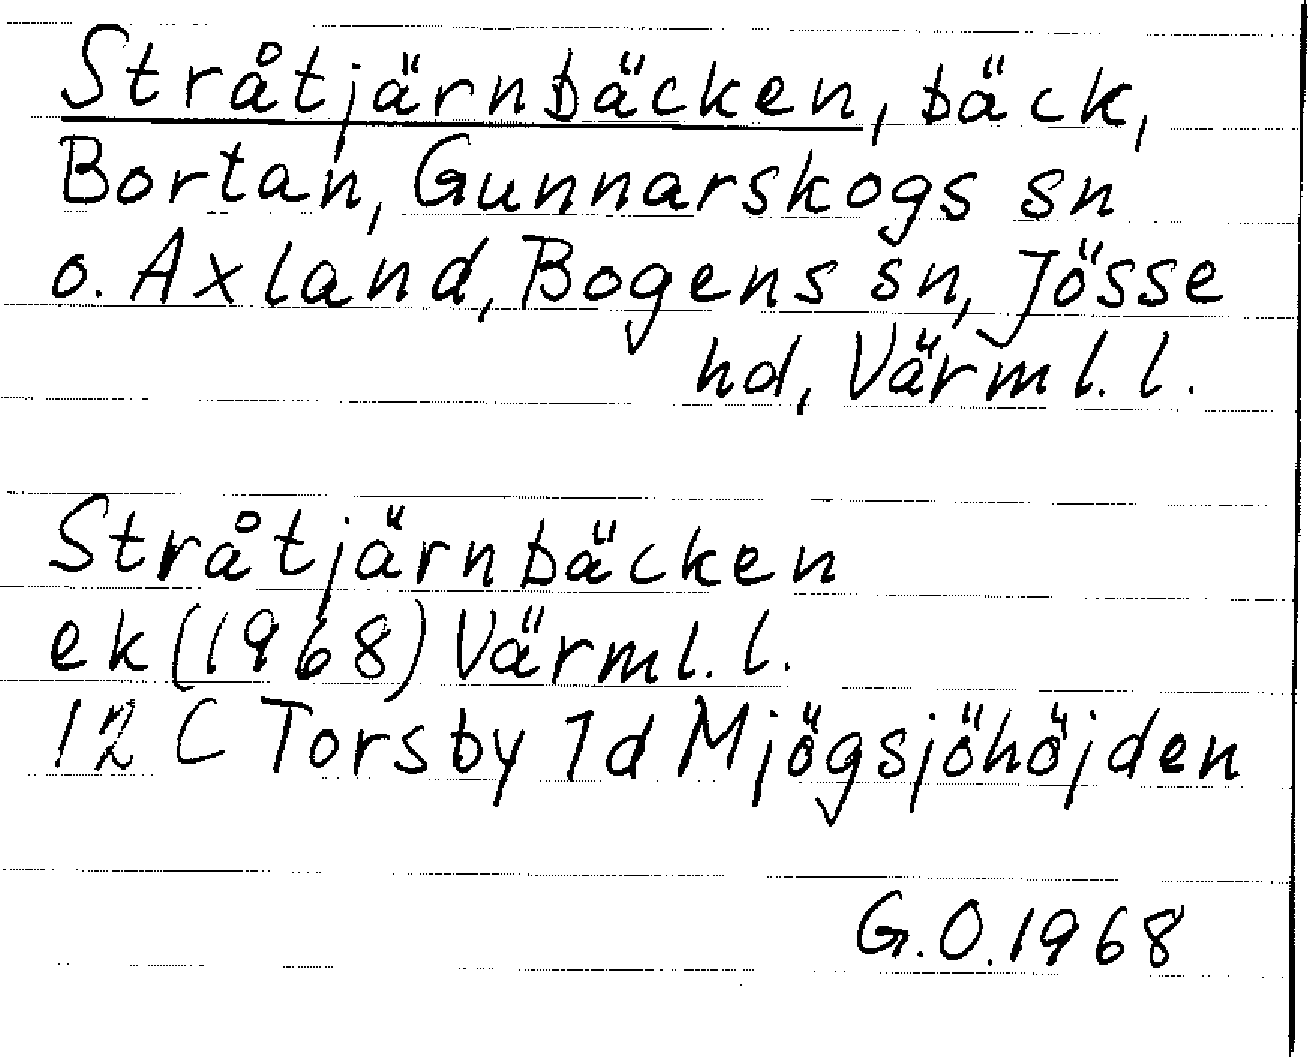 Stråtjärnbäcken, bäck,
Bortan, Gunnarskogs sn
o. Axland, Bogens sn, Jösse
hd, Värml. l.
Stråtjärnbäcken
ek (1968) Värml. l.
12 C Torsby 1d Mjögsjöhöjden
G.O. 1968